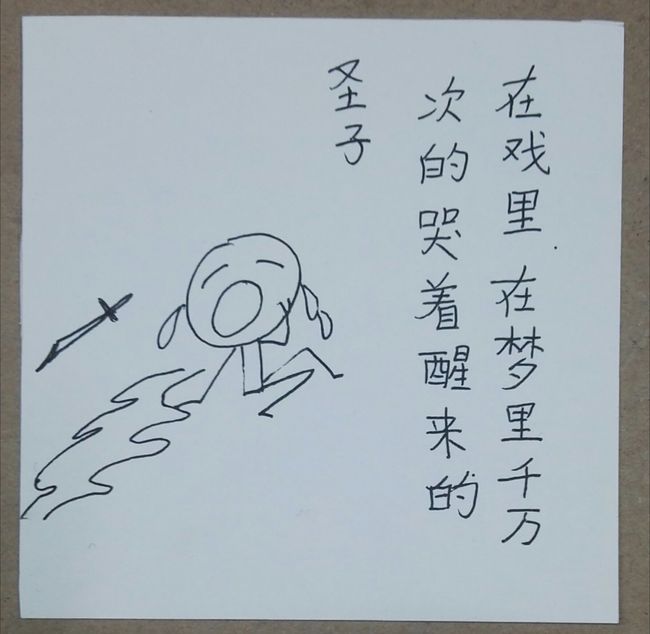 在戏里 在梦里千万
次的哭着醒来的
圣子